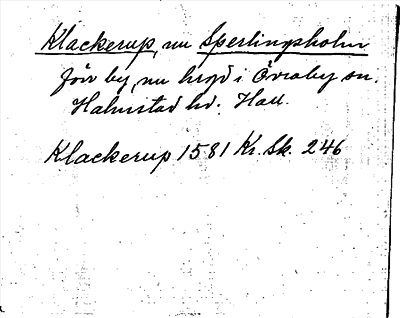 Klackerup, nu Sperlingsholm
förr by, nu hrgd i Övraby sn.
Halmstad hd. Hall.
Klackerup 1581 Kr. Sk. 246